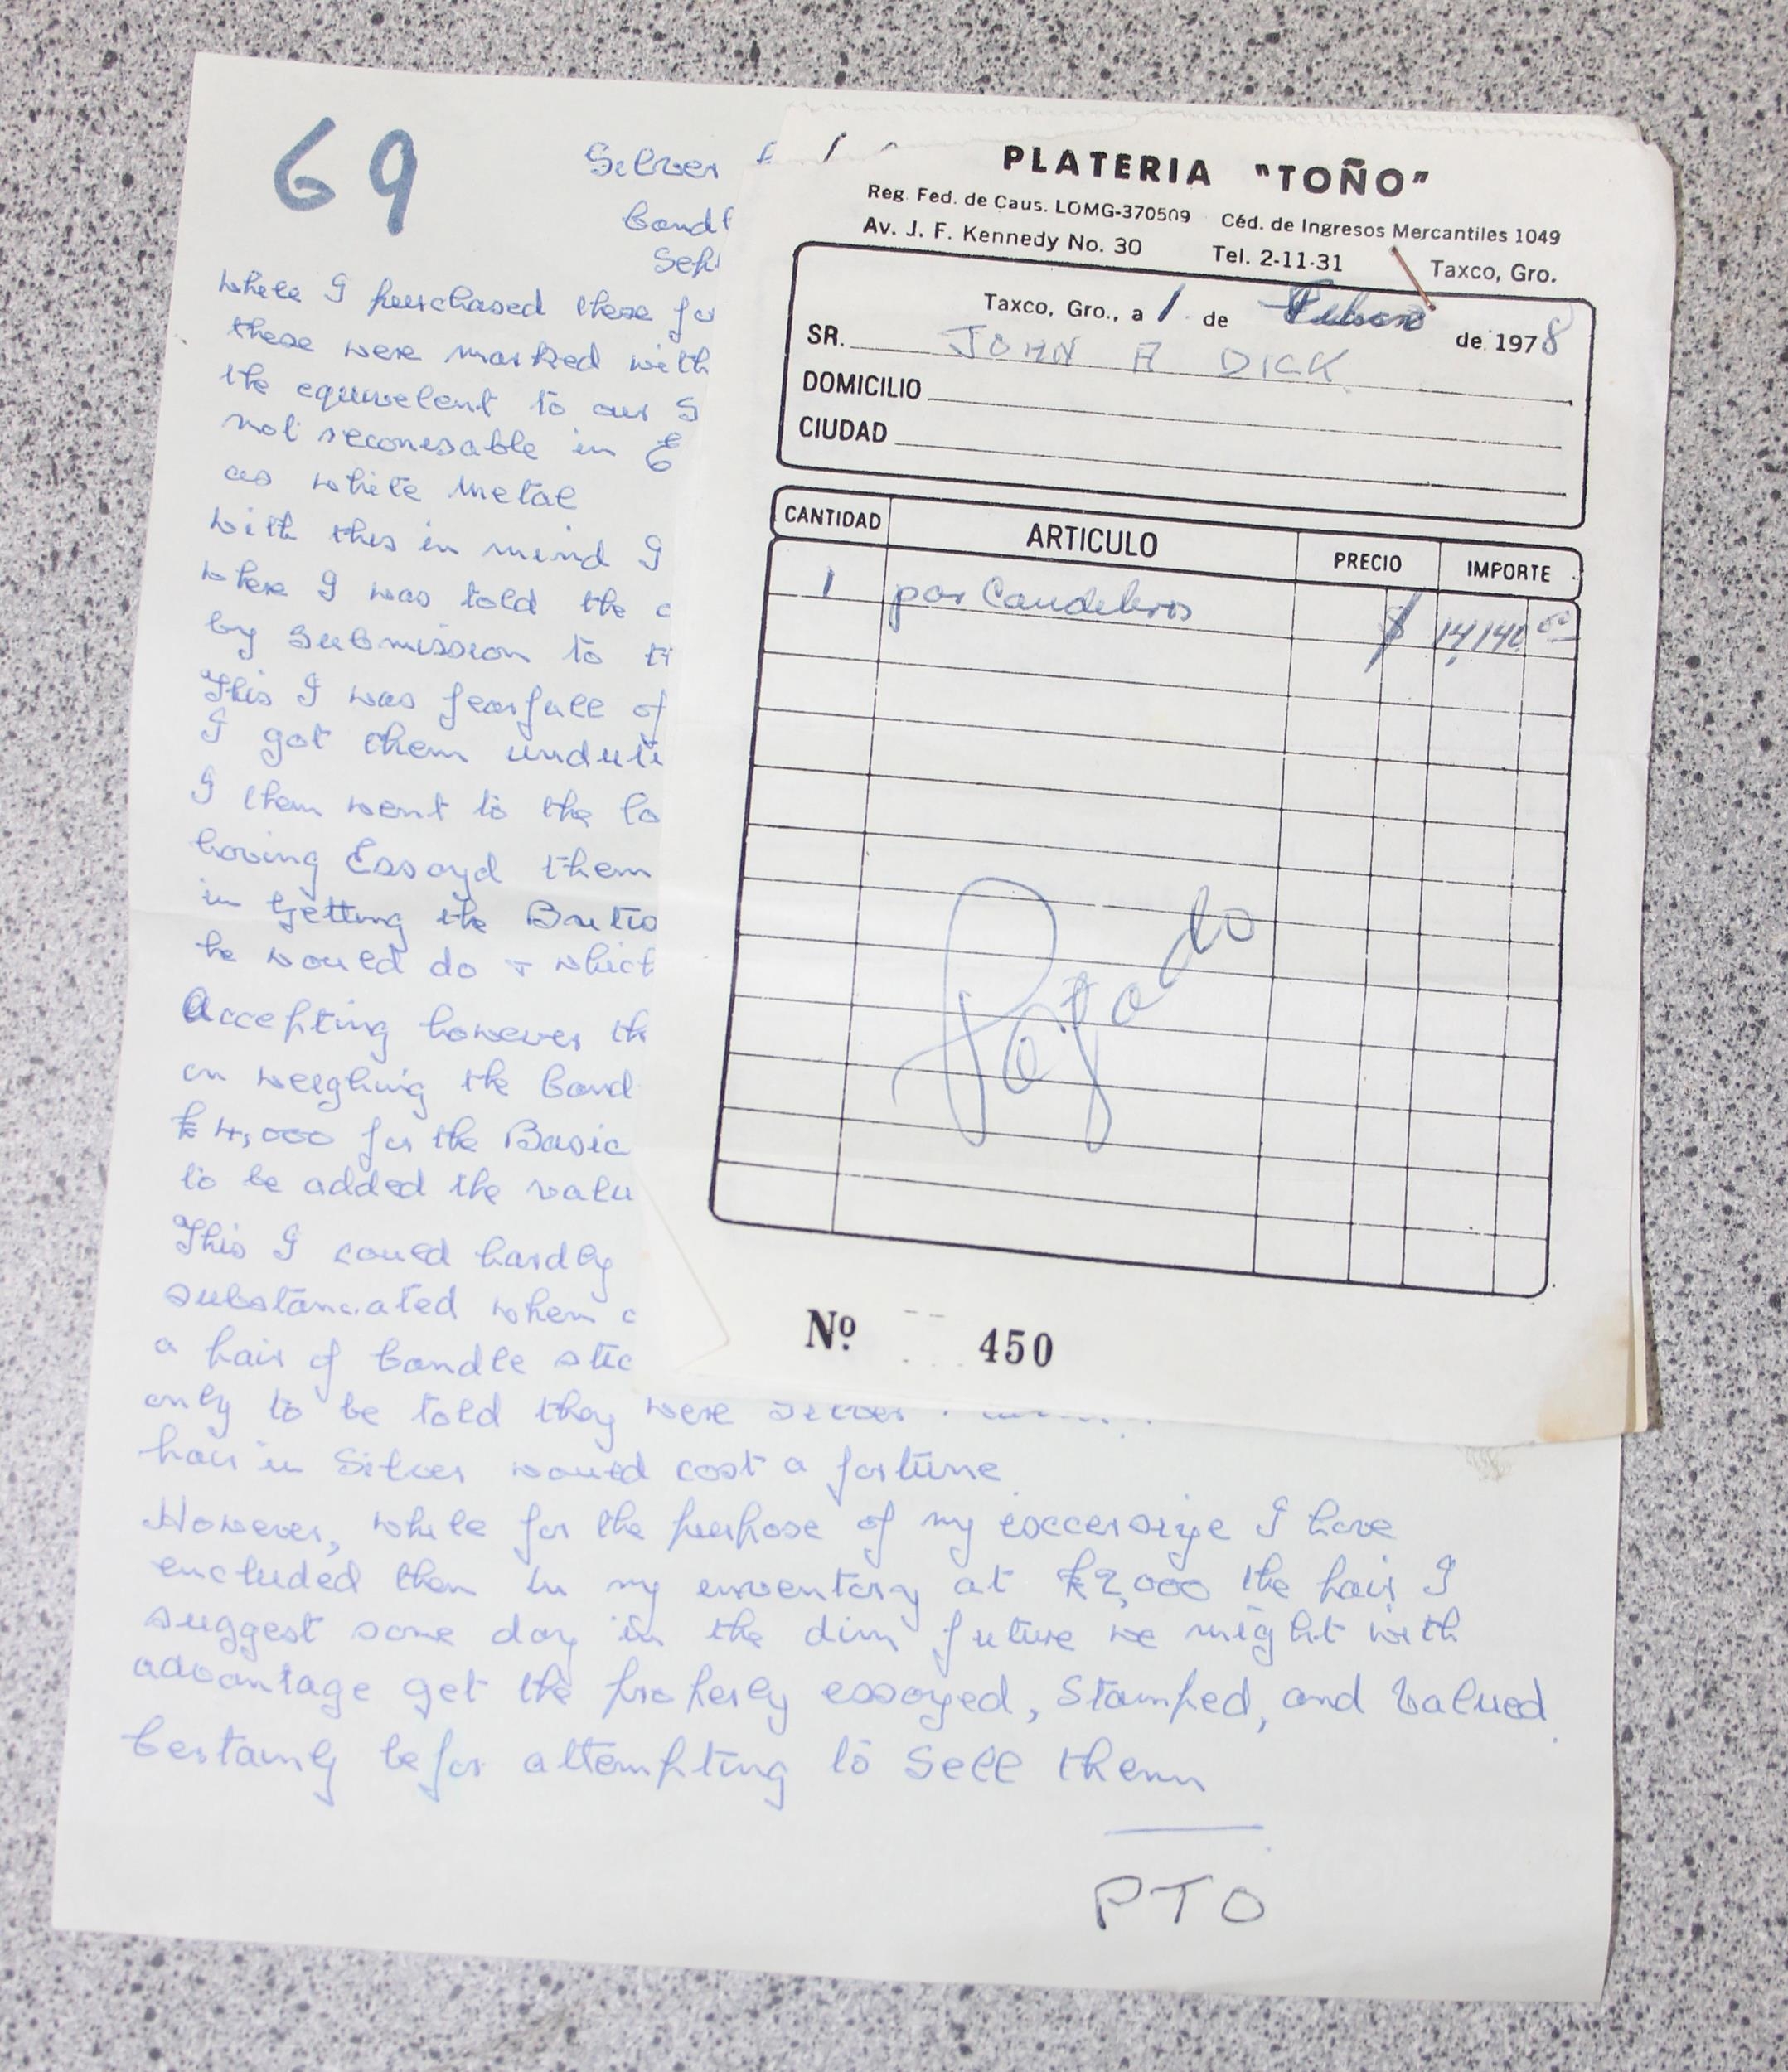 69
Silver
Candl
Sep
While I purchased these fo
these were marked with
the equivelent to our S
not reconisable in E
as white metal
With this in mind I
where I was told the
by submission to
This I was fearfull of
I got them unduti
I then went to the lo
having Essayd them
in getting the Britis
he would do + which
Accepting however th
on weighing the Cand
£4,000 for the Basic
to be added the valu
This I could hardly
substanciated when
a pair of Candle stic
only to be told they were Silver
pair in Silver would cost a fortune
However, while for the purpose of my exccersize I have
encluded then in my enventory at £2,000 the pair I
suggest some day in the dim future we might with
advantage get the properly essayed, Stamped, and Valued
Certainly befor attempting to Sell them
PTO
PLATERIA "TOÑO"
Reg. Fed. de Caus. LOMG-370509 Céd. de Ingresos Mercantiles 1049
Av. J. F. Kennedy No. 30 Tel. 2-11-31 Taxco, Gro.
Taxco, Gro., a 1 de de 1978
SR. JOHN A DICK
DOMICILIO
CIUDAD
CANTIDAD ARTICULO PRECIO IMPORTE
1 par Candeleros $ 14,140 00
Pagado
Nº 450